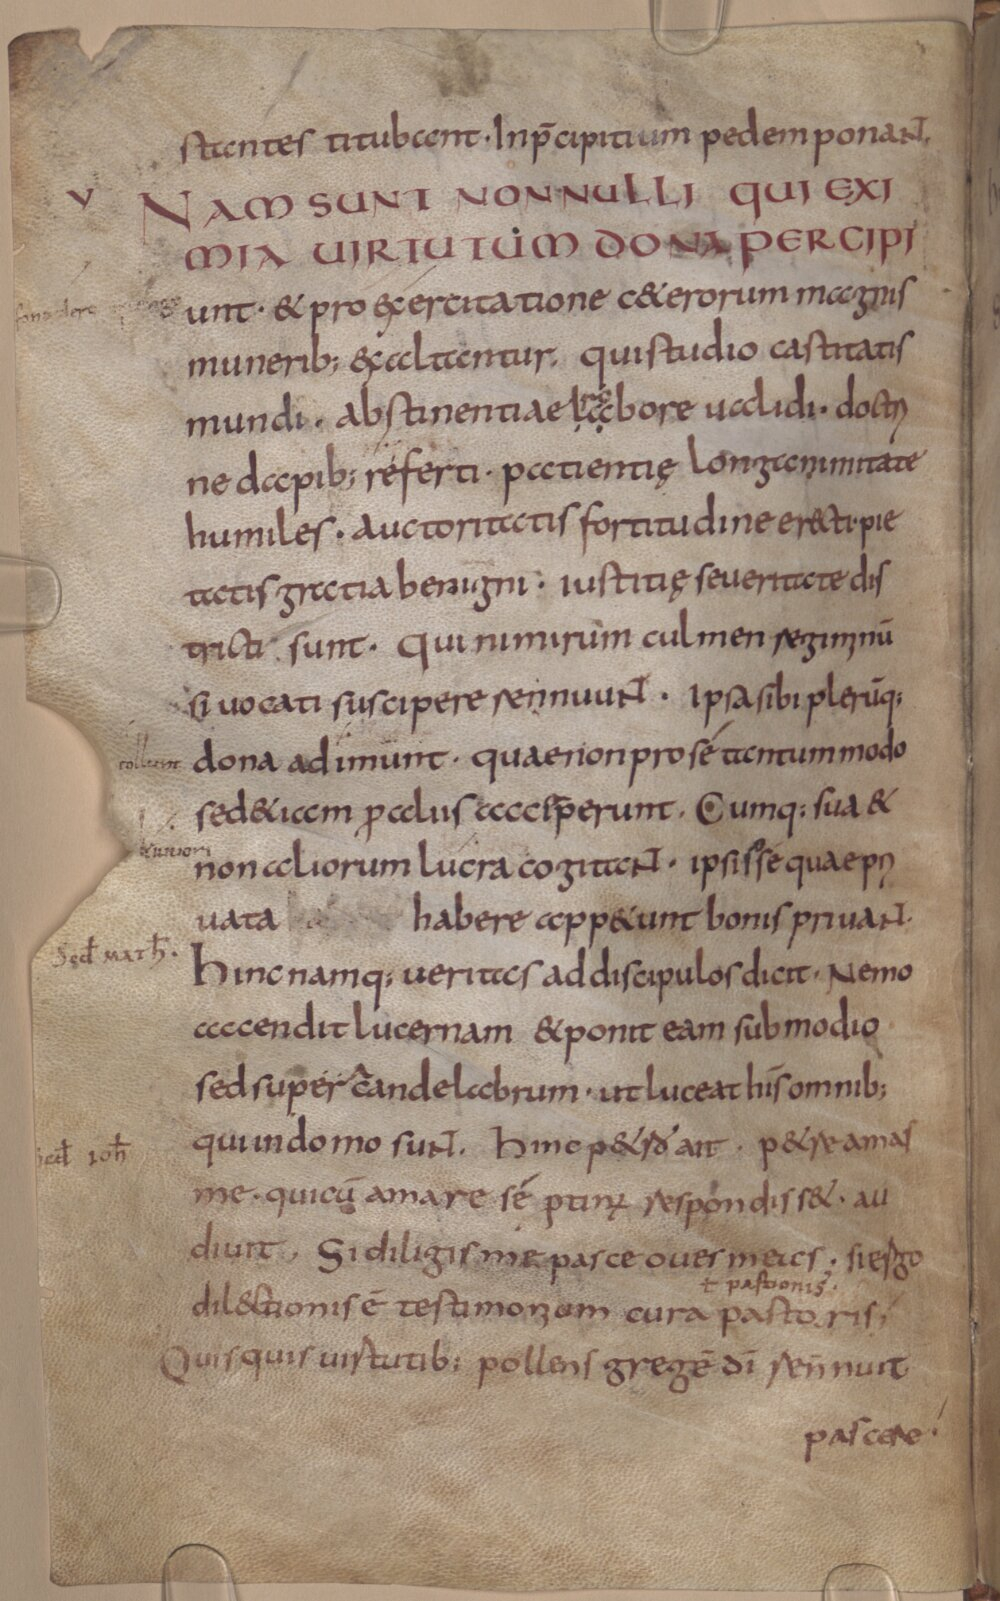 stantes titubant · In p̄cipitium pedem ponant.
V NAM SUNT NONNULLI QUI EXI
MIA UIRTUTUM DONA PERCIPI
unt · & pro exercitatione c&erorum magnis
munerib; exaltantur. qui studio castitatis
mundi · abstinentiae labore ualidi · doctri
ne dapib; referti · patientię longanimitate
humiles · auctoritatis fortitudine erecti · pie
tatis gratia benigni · iustitię seueritate dis
tricti sunt · Qui nimirum culmen regiminū
si uocati suscipere rennuunt · Ipsa sibi plerūq;
tollunt
dona adimunt · quae non pro sé tantum modo
sed &iam ꝓ aliis acciperunt. Cumq; sua &
non aliorum lucra cogitant · ipsis se quae pri
uata habere app&unt bonis priuant.
Sed̄ MATH̄.
Hinc namq; ueritas ad discipulos dicit · Nemo
accendit lucernam & ponit eam sub modio
sed super candelabrum · ut luceat his omnib;
qui in domo sunt. Hinc p&ro ait · p&re amas
Sed̄ IOH̄
me · qui cū amare sé ptinꝰ respondiss& · au
diuit. Si diligis me pasce oues meas · si ergo
ƚ pastionis.
dilectionis ē testimonium cura pastoris;
Quisquis uirtutib; pollens gregē dī rennuit
pascere ·